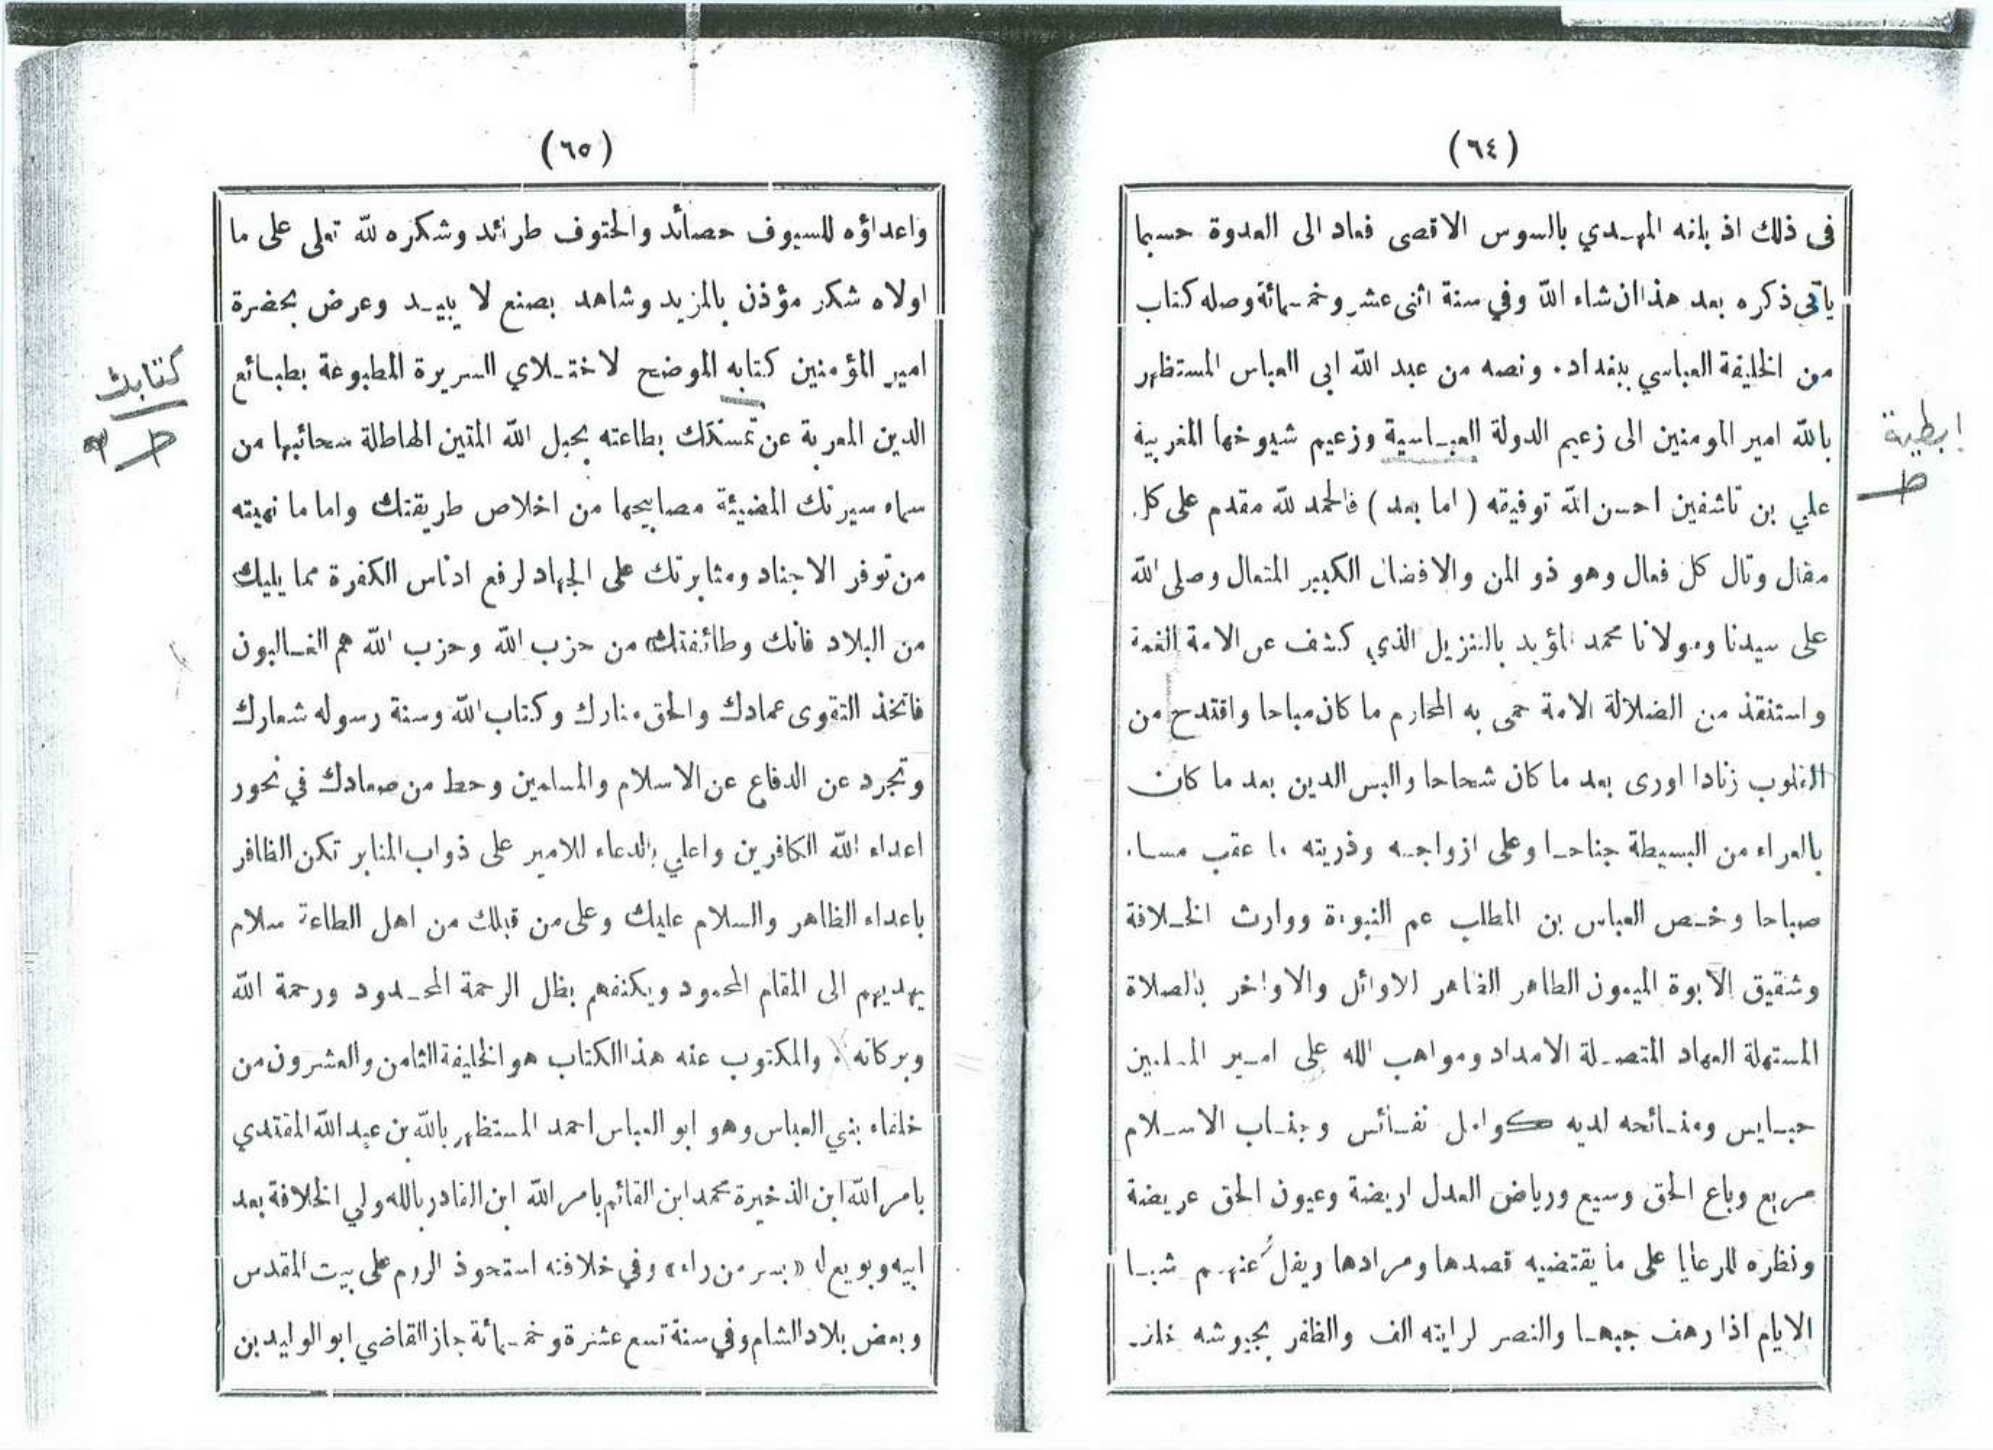 (٦٤)
فى ذلك اذ بلغه المهدي بالسوس الاقصى فعاد الى العدوة حسبما
ياتى ذكره بعد هذا ان شاء الله وفي سنة اثنى عشر وخمسمائة وصله كتاب
من الخليفة العباسي ببغداد. ونصه من عبد الله ابى العباس المستظهر
بالله امير المومنين الى زعيم الدولة العباسية وزعيم شيوخها المغربية
علي بن تاشفين احسن الله توفيقه (اما بعد) فالحمد لله مقدم على كل
مقال وتال كل فعال وهو ذو المن والافضال الكبير المتعال وصلى الله
على سيدنا ومولانا محمد المؤيد بالتنزيل الذي كشف عن الامة الغمة
واستنقذ من الضلالة الامة حمى به المحارم ما كان مباحا واقتدح من
القلوب زنادا اورى بعد ما كان شحاحا والبس الدين بعد ما كان
بالعراء من البسيطة جناحا وعلى ازواجه وذريته ما عقب مساء
صباحا وخص العباس بن المطلب عم النبوءة ووارث الخلافة
وشقيق الابوة الميمون الطاهر الظاهر الاوائل والاواخر بالصلاة
المستهلة العهاد المتصلة الامداد ومواهب الله على امير المسلمين
حبايس ومنائحه لديه كوامل نفائس وجناب الاسلام
مريع وباع الحق وسيع ورياض العدل اريضة وعيون الحق عريضة
ونظره للرعايا على ما يقتضيه قصدها ومرادها ويفل عنهم شبا
الايام اذا رهف جبهها والنصر لرايته الف والظفر بجيوشه
(٦٥)
واعداؤه للسيوف حصائد والحتوف طرائد وشكره لله تعلى على ما
اولاه شكر مؤذن بالمزيد وشاهد بصنع لا يبيد وعرض بحضرة
امير المؤمنين كتابه الموضح لاختلاي السريرة المطبوعة بطبائع
الدين المعربة عن تمسكك بطاعته بحبل الله المتين الهاطلة سحائبها من
سماء سيرتك المضيئة مصابيحها من اخلاص طريقتك واما ما نهيته
من توفر الاجناد ومثابرتك على الجهاد لرفع ادناس الكفرة مما يليك
من البلاد فانك وطائفتك من حزب الله وحزب الله هم الغالبون
فاتخذ التقوى عمادك والحق منارك وكتاب الله وسنة رسوله شعارك
وتجرد عن الدفاع عن الاسلام والمسلمين وحط من صعادك في نحور
اعداء الله الكافرين واعلي بالدعاء للامير على ذواب المنابر تكن الظافر
باعداء الظاهر والسلام عليك وعلى من قبلك من اهل الطاعة سلام
يهديهم الى المقام المحمود ويكنفهم بظل الرحمة المحدود ورحمة الله
وبركاته. والمكتوب عنه هذا الكتاب هو الخليفة الثامن والعشرون من
خلفاء بني العباس وهو ابو العباس احمد المستظهر بالله بن عبد الله المقتدي
بامر الله ابن الذخيرة محمد ابن القائم بامر الله ابن القادر بالله ولي الخلافة بعد
ابيه وبويع له «بسر من راء» وفي خلافته استحوذ الروم على بيت المقدس
وبعض بلاد الشام وفي سنة تسع عشرة وخمسمائة جاز القاضي ابو الوليد بن
كتابك
ط
ط